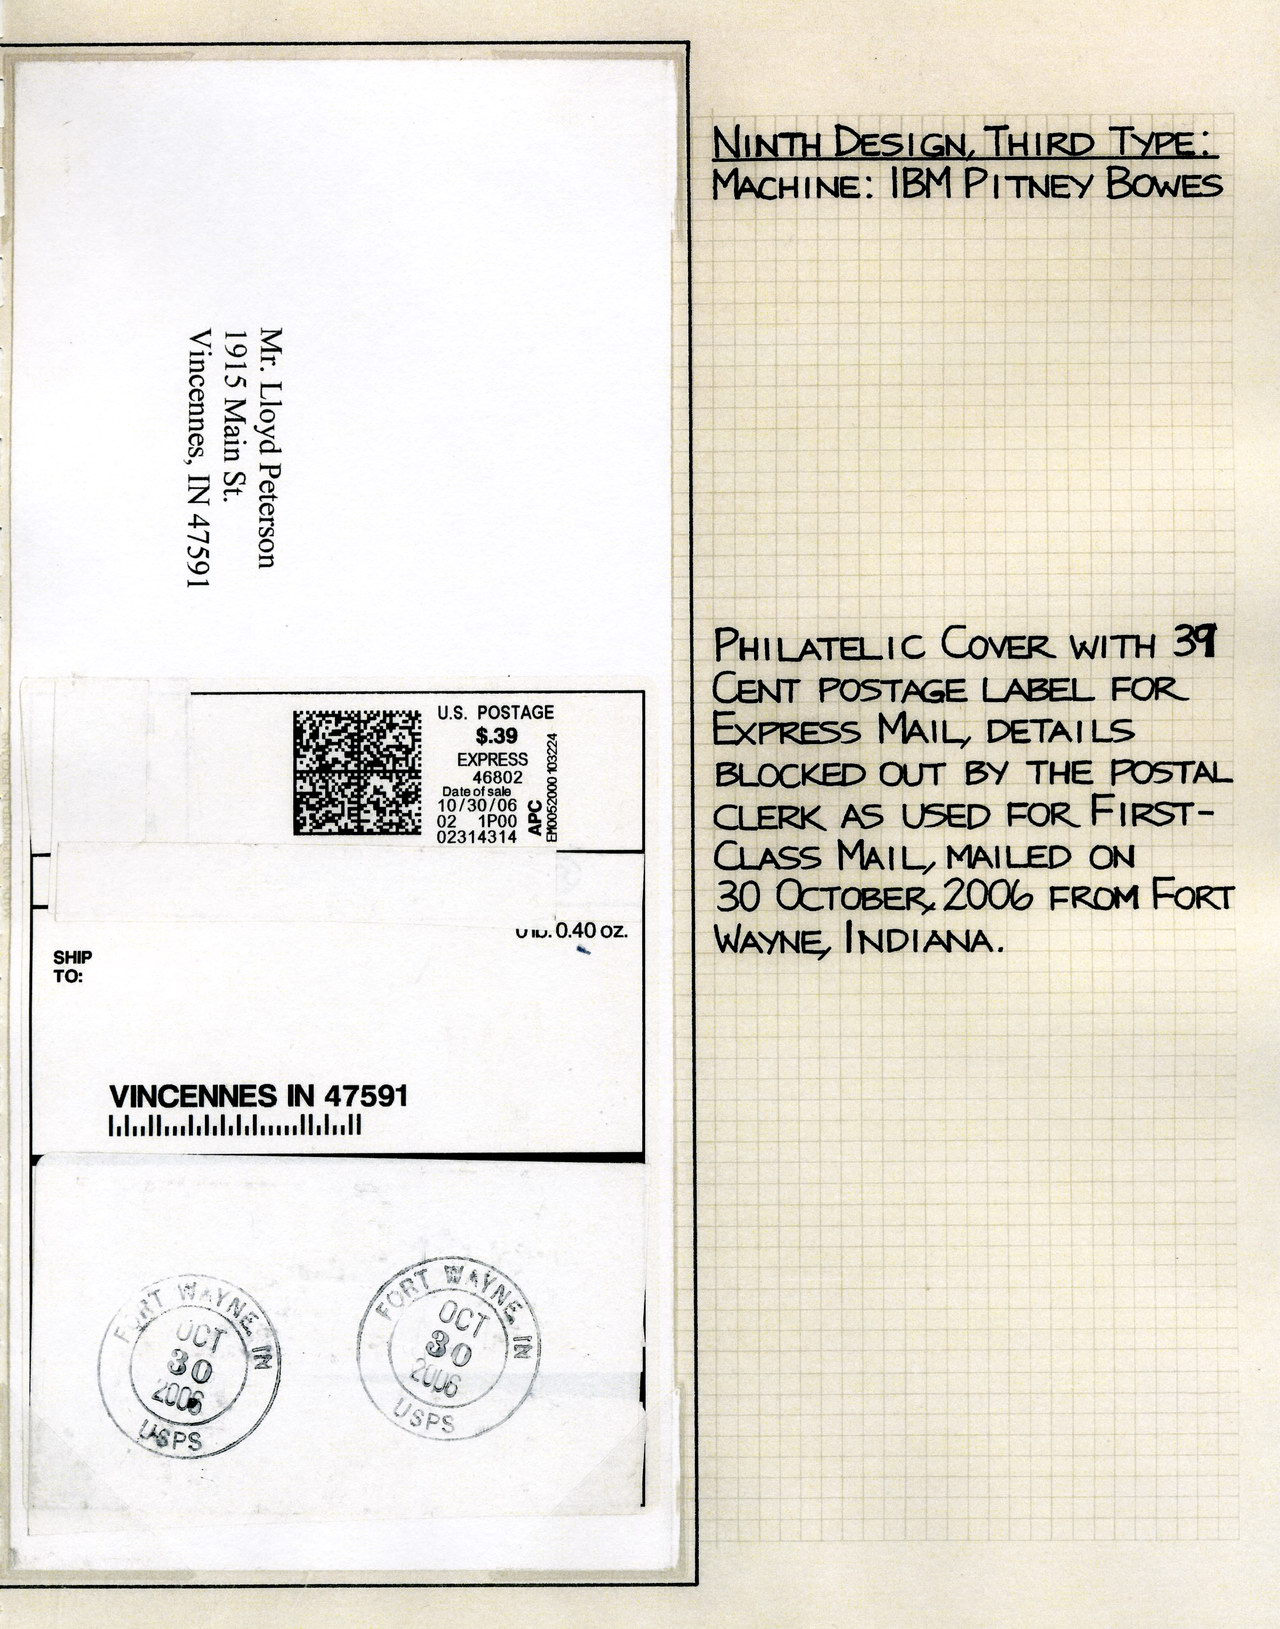 NINTH DESIGN, THIRD TYPE:
MACHINE: IBM PITNEY BOWES
Mr. Lloyd Peterson
1915 Main St.
Vincennes, IN 47591
PHILATELIC COVER WITH 39
CENT POSTAGE LABEL FOR
EXPRESS MAIL, DETAILS
BLOCKED OUT BY THE POSTAL
CLERK AS USED FOR FIRST-
CLASS MAIL, MAILED ON
30 OCTOBER, 2006 FROM FORT
WAYNE, INDIANA.
U.S. POSTAGE
$.39
EXPRESS
46802
Date of sale
10/30/06
02 1P00
02314314
APC
EM0052000103224
0.40 oz.
SHIP
TO:
VINCENNES IN 47591
FORT WAYNE, IN
OCT
30
2006
USPS
FORT WAYNE, IN
OCT
30
2006
USPS